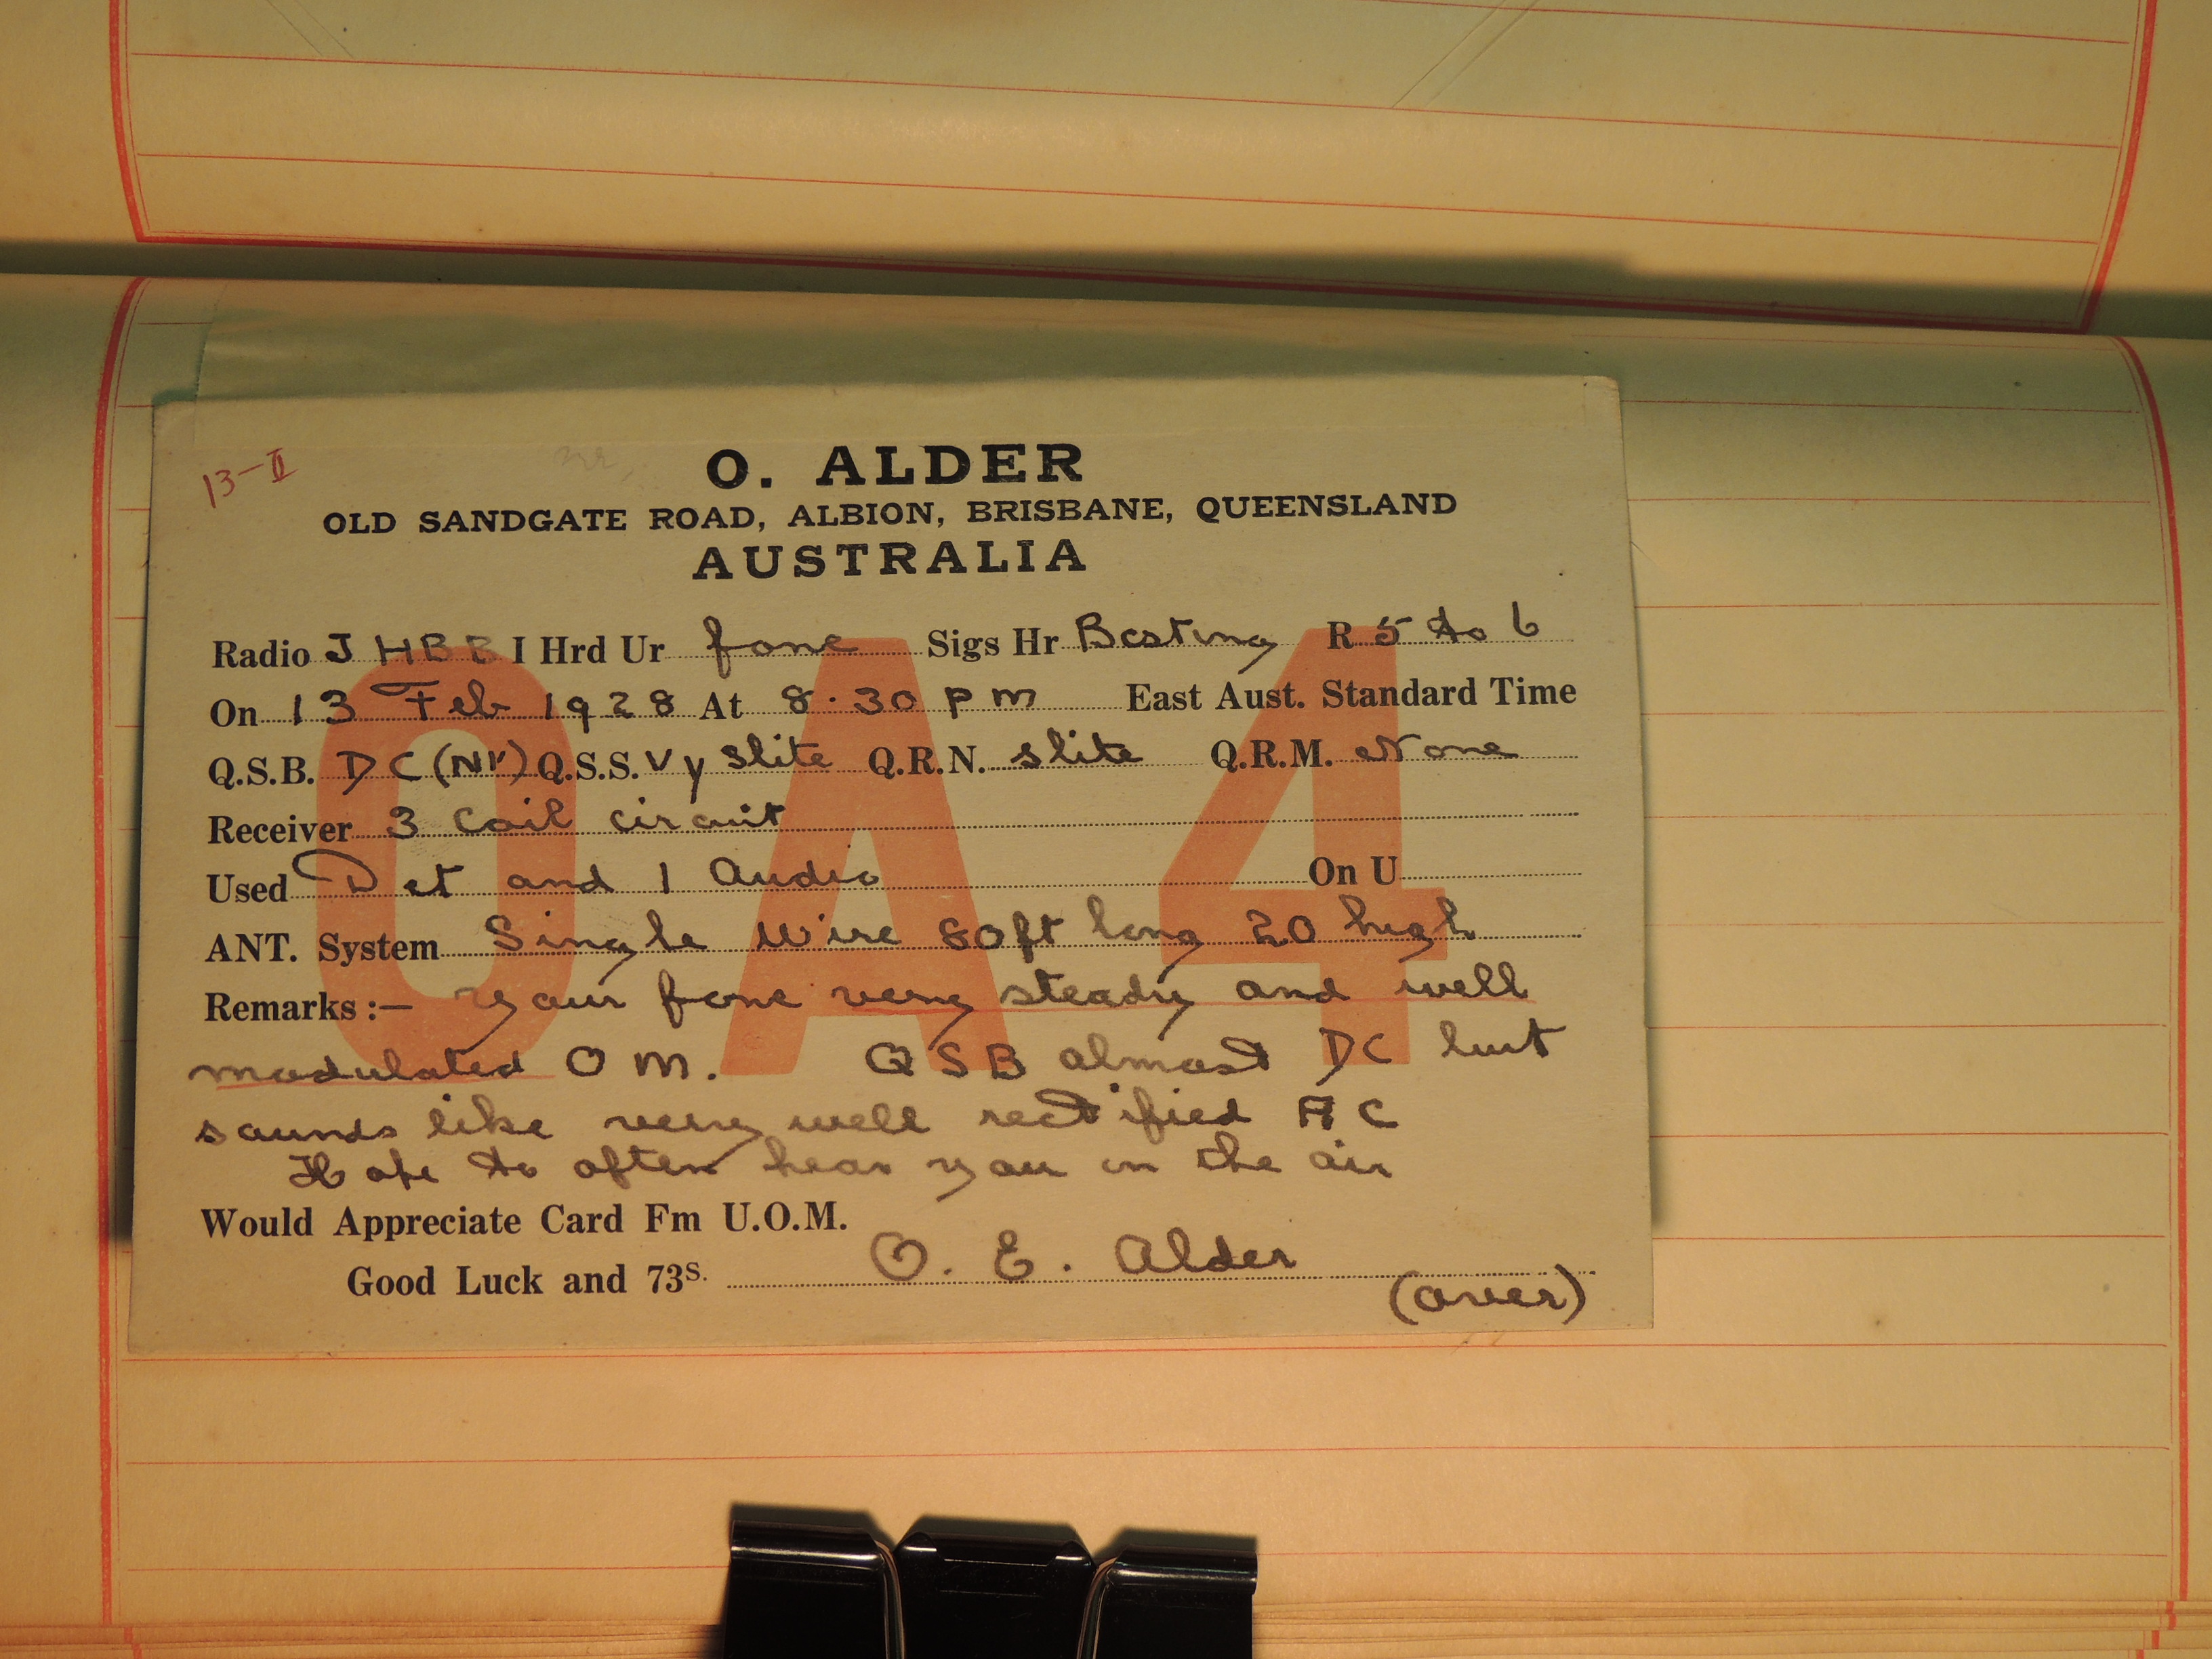 13-II
O. ALDER
OLD SANDGATE ROAD, ALBION, BRISBANE, QUEENSLAND
AUSTRALIA
OA4
Radio JHBB I Hrd Ur fone Sigs Hr Bcsting R 5 to 6
On 13 Feb 1928 At 8.30 pm East Aust. Standard Time
Q.S.B. DC (Nr) Q.S.S. Vy slite Q.R.N. slite Q.R.M. None
Receiver 3 Coil circuit
Used Det and 1 Audio On U
ANT. System Single Wire 80ft long 20 high
Remarks :— your fone very steady and well
modulated OM. QSB almost DC but
sounds like very well rectified AC
Hope to often hear you on the air
Would Appreciate Card Fm U.O.M.
Good Luck and 73s. O. E. Alder
(over)